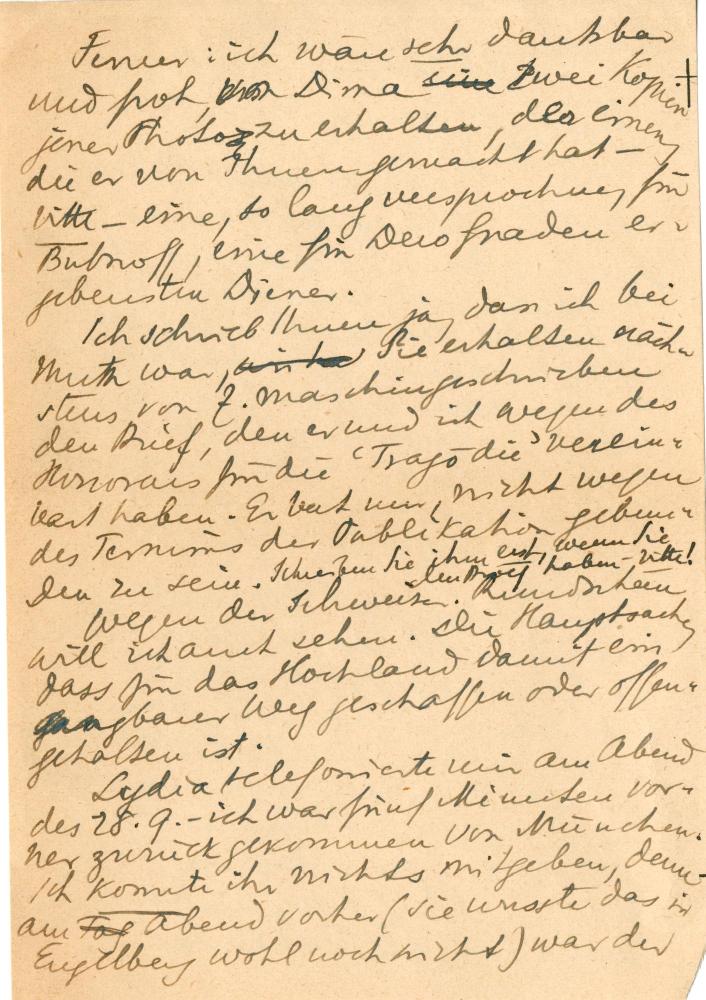 Ferner: ich wäre sehr dankbar
und froh, von Dima eine zwei Kopien
jener Photos zu erhalten, der einen,
die er von Ihnen gemacht hat –
bitte – eine, so lang versprochen, für
Bubnoff, eine für Dero Gnaden er-
gebensten Diener.
Ich schrieb Ihnen ja, dass ich bei
Muth war, Sie erhalten näch-
stens von ihm maschingeschrieben
den Brief, den er und ich wegen des
Honorars für die 'Tragödie' verein-
bart haben. Er bat nur, nicht wegen
des Termins der Publikation gebun-
den zu sein. Schreiben Sie ihm erst, wenn Sie
den Brief haben, bitte!
Wegen der Schweizer. Rundschau
will ich auch sehen. Die Hauptsache,
dass für das Hochland damit ein
gangbarer Weg geschaffen oder offen-
gehalten ist.
Lydia telefonierte mir am Abend
des 28.9. – ich war fünf Minuten vor-
her zurückgekommen von München.
Ich konnte ihr nichts mitgeben, denn
am Tag Abend vorher (sie wusste das in
Engelberg wohl noch nicht) war der